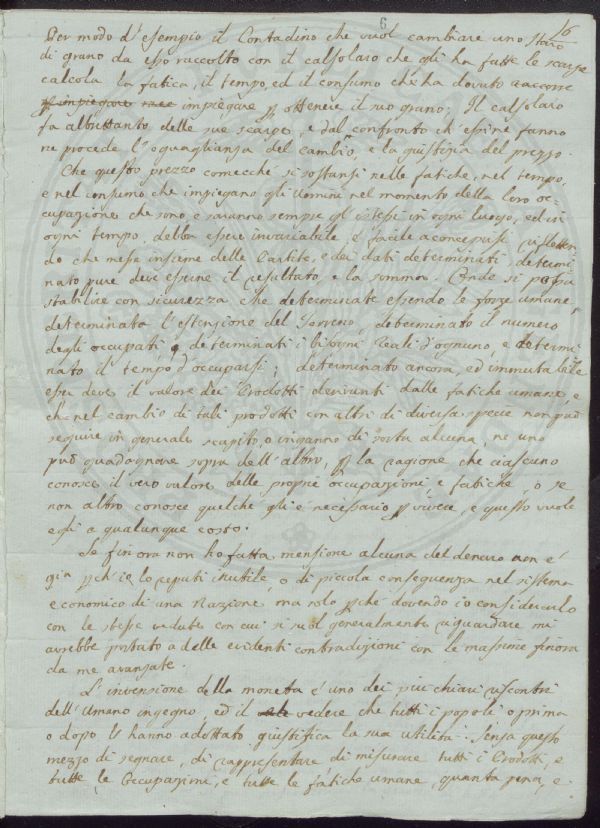 6
16
Per modo d'esempio il Contadino che vuol cambiare uno staro
di grano da esso raccolto con il calsolaro che gli ha fatte le scarpe
calcola la fatica, il tempo, ed il consumo che ha dovuto
impiegare impiegare p ottenere il suo grano; Il calsolaro
fa altrettanto delle sue scarpe, e dal confronto ch'essine fanno
ne procede l'eguaglianza del cambio, e la giustizia del prezzo.
Che questo prezzo comecchè si sostansi nelle fatiche, nel tempo,
e nel consumo che impiegano gli Uomini nel momento della loro oc-
cupazione che sono, e saranno sempre gl'istessi in ogni luogo, ed in
ogni tempo, debba essere invariabile è facile a concepirsi rifletten-
do che messe insieme delle Partite, e dei dati determinati, determi-
nato pure deve esserne il resultato e la somma. Onde si possa
stabilire con sicurezza che determinate essendo le forze umane,
determinata l'estensione del Terreno, determinato il numero
degli occupati, e determinati i bisogni reali d'ognuno, e determi-
nato il tempo d'occuparsi; determinato ancora, ed immutabile
esser deve il valore dei Prodotti derivanti dalle fatiche umane, e
che nel cambio di tali prodotti con altri di diversa specie non può
seguire in generale scapito, o inganno di sorta alcuna, ne uno
può guadagnare sopra dell'altro, p la ragione che ciascuno
conosce il vero valore delle proprie occupazioni e fatiche, o se
non altro conosce quelche gli è necessario p vivere, e questo vuole
egli a qualunque costo.
Se finora non ho fatta mensione alcuna del denaro non è
gia pch'io lo reputi inutile, o di piccola conseguenza nel sistema
economico di una Nazione, ma solo pchè dovendo io considerarlo
con le stesse vedute con cui si suol generalmente riguardare mi
avrebbe portato a delle evidenti contradizioni con le massime finora
da me avanzate.
L'invensione della moneta è uno dei più chiari riscontri
dell'Umano ingegno, ed il vedere che tutti i popoli o prima
o dopo l'hanno adottato giustifica la sua utilità. Senza questo
mezzo di segnare, di rappresentare di misurare tutti i Prodotti, e
tutte le Occupazioni, e tutte le fatiche umane, quanta pena, e